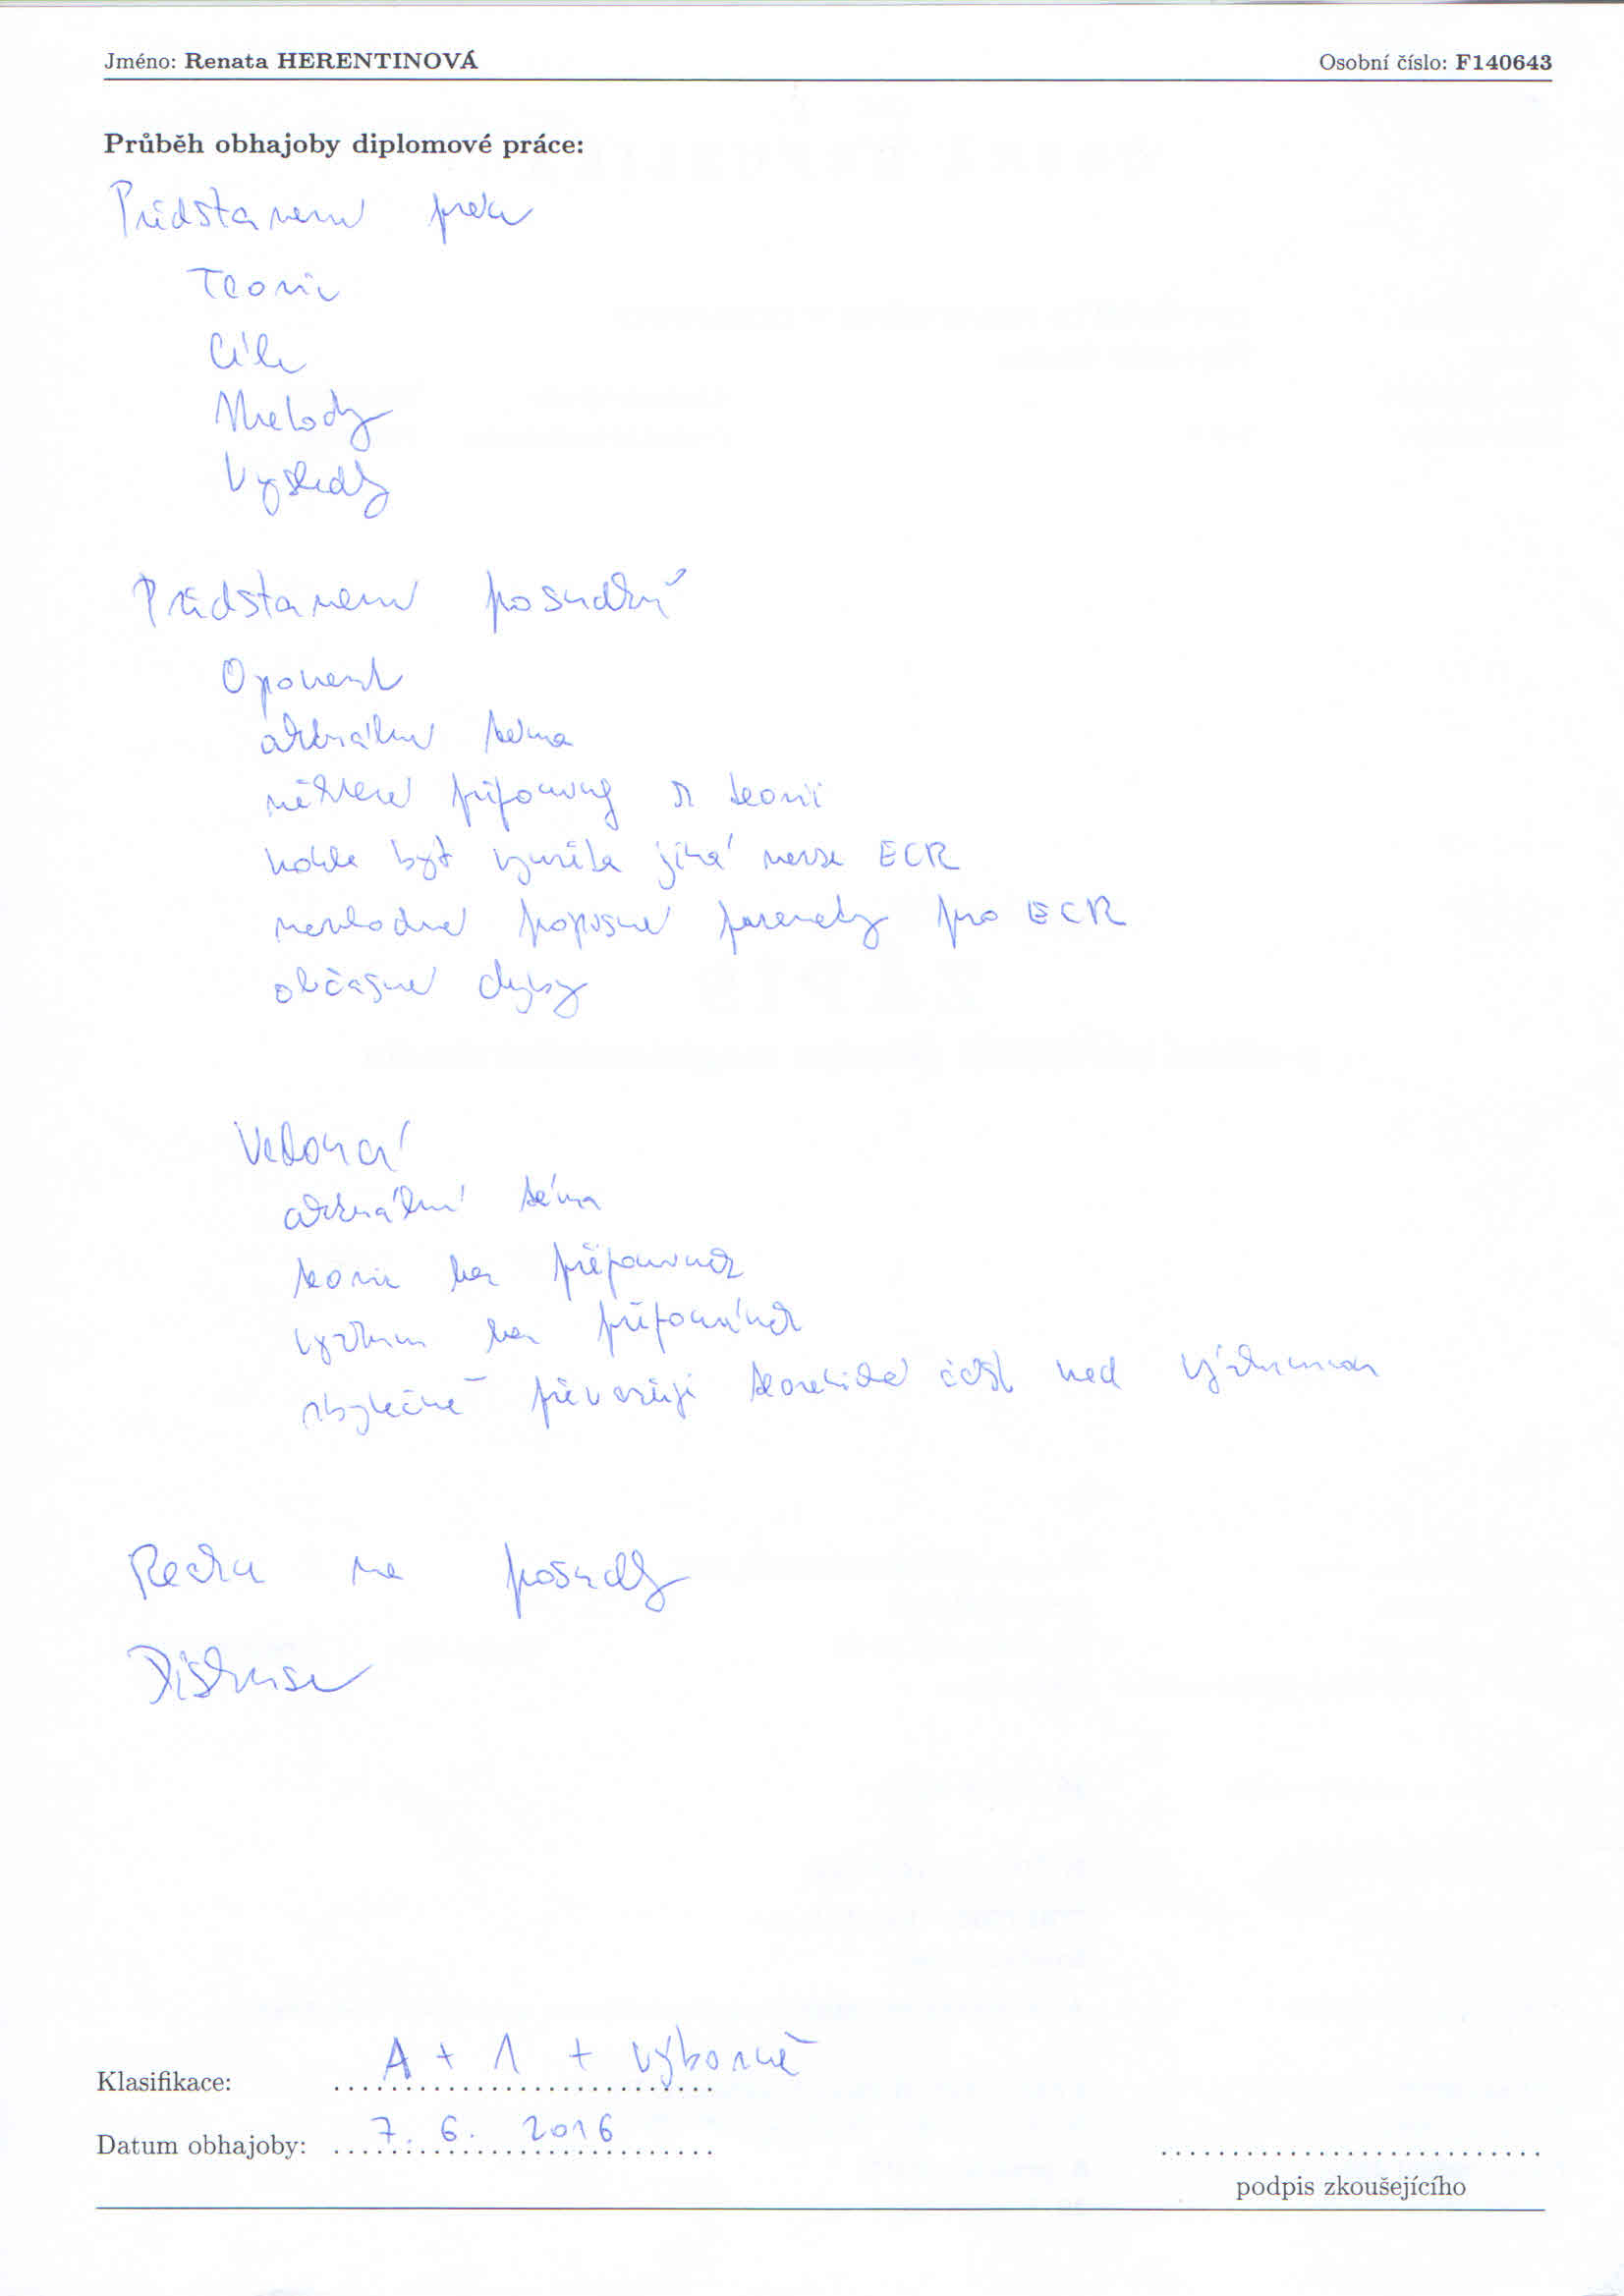 Jméno: Renata HERENTINOVÁ Osobní číslo: F140643
Průběh obhajoby diplomové práce:
Představení práce
Teorie
Cíle
Metody
Výsledky
Představení posudků
Oponent
aktuální téma
některé připomínky k teorii
mohla být využita jiná verze ECR
nevhodně popsané parametry pro ECR
občasné chyby
Vedoucí
aktuální téma
teorie bez připomínek
výzkum bez připomínek
zbytečně převažuje teoretická část nad výzkumnou
Reakce na posudky
Diskuse
Klasifikace: A + 1 + výborně
Datum obhajoby: 7. 6. 2016
podpis zkoušejícího